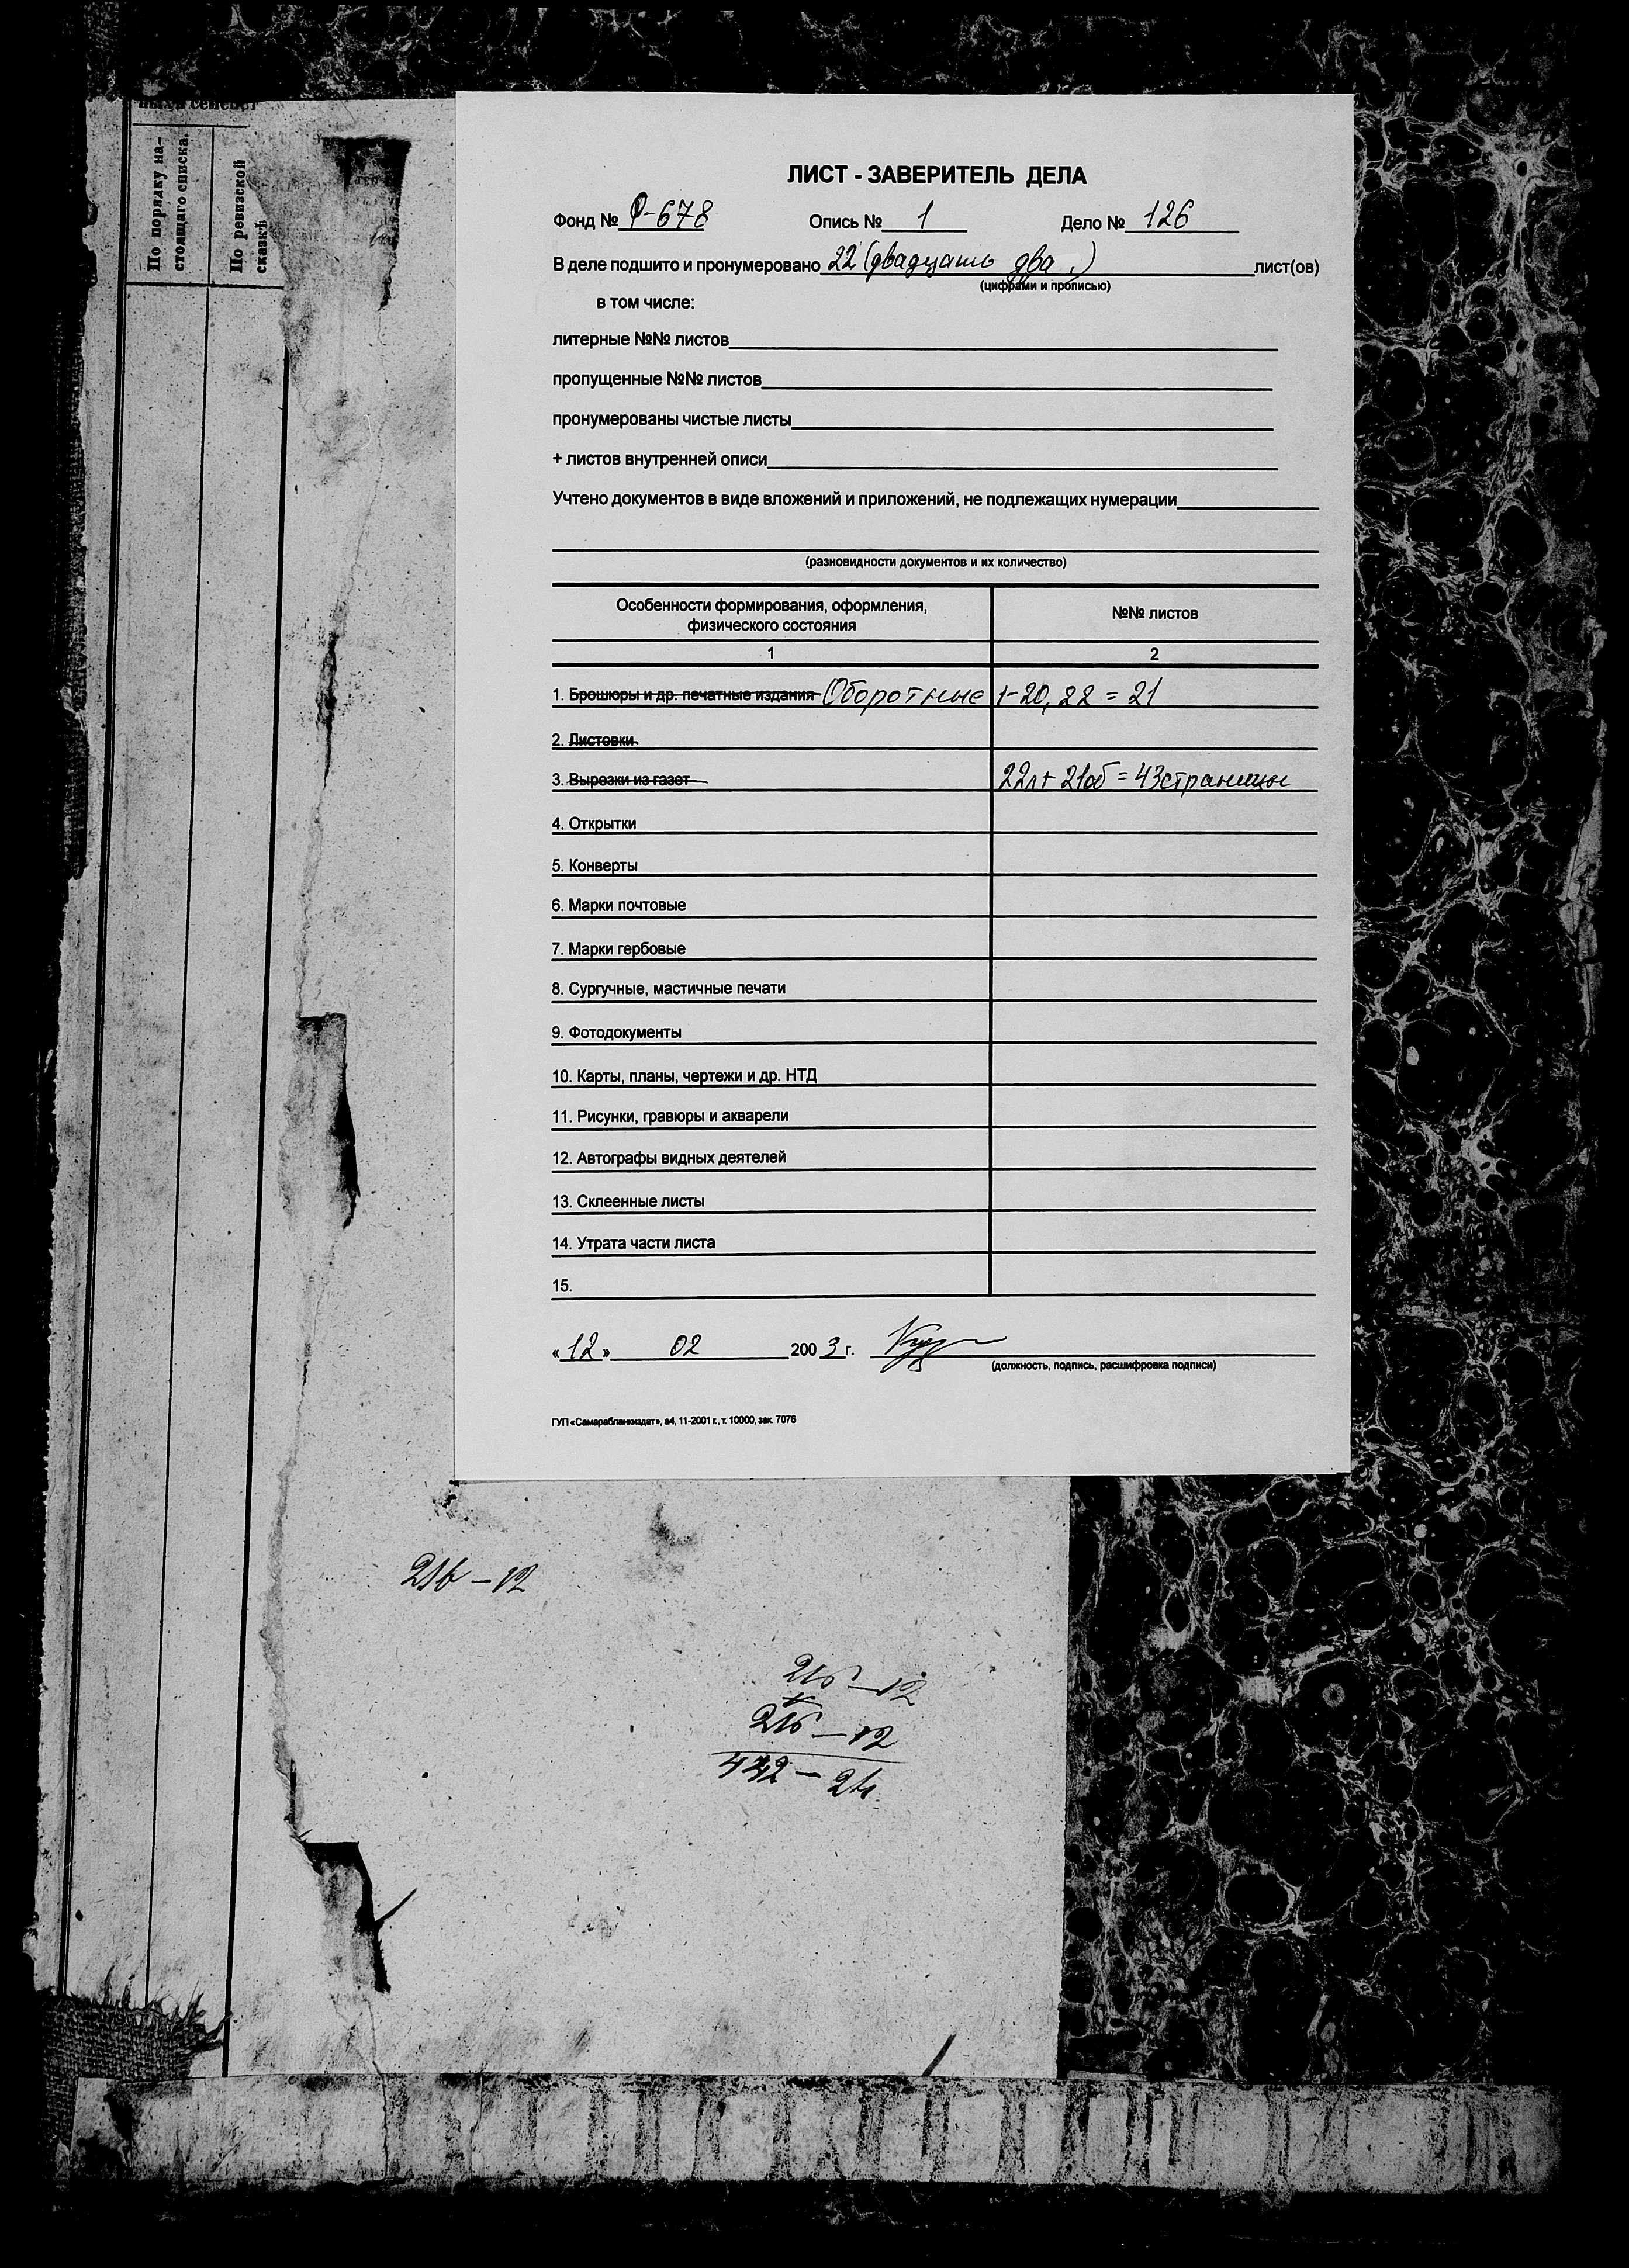 ныхъ
По порядку на-
стоящаго списка.
По ревизской
сказкѣ
ЛИСТ - ЗАВЕРИТЕЛЬ ДЕЛА
Фонд № Р-678 Опись № 1 Дело № 126
В деле подшито и пронумеровано 22 (двадцать два) лист(ов)
(цифрами и прописью)
в том числе:
литерные №№ листов
пропущенные №№ листов
пронумерованы чистые листы
+ листов внутренней описи
Учтено документов в виде вложений и приложений, не подлежащих нумерации
(разновидности документов и их количество)
Особенности формирования, оформления, физического состояния №№ листов
1 2
1. Брошюры и др. печатные издания Оборотные 1-20, 22 = 21
2. Листовки
3. Вырезки из газет 22л + 21об = 43 страницы
4. Открытки
5. Конверты
6. Марки почтовые
7. Марки гербовые
8. Сургучные, мастичные печати
9. Фотодокументы
10. Карты, планы, чертежи и др. НТД
11. Рисунки, гравюры и акварели
12. Автографы видных деятелей
13. Склеенные листы
14. Утрата части листа
15.
«12» 02 2003 г.
(должность, подпись, расшифровка подписи)
ГУП «Самарабланкиздат», а4, 11-2001 г., т. 10000, зак. 7076
216 - 12
216 - 12
216 - 12
432 - 24